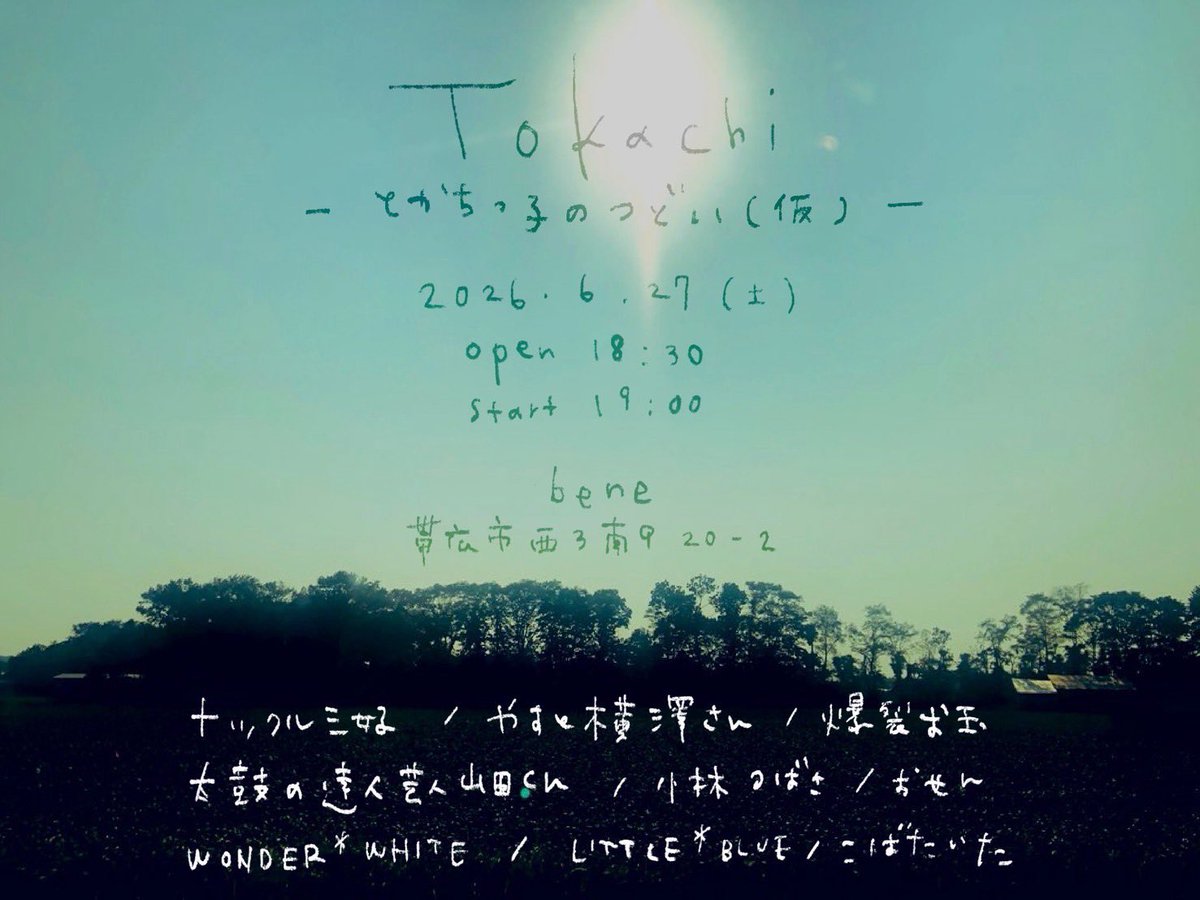 Tokachi
- とかちっ子のつどい(仮) -
2026.6.27(土)
open 18:30
start 19:00
bene
帯広市西3南9 20-2
ナックル三好 / やすと横澤さん / 爆裂お玉
太鼓の達人芸人山田くん / 小林つばさ / おせん
WONDER*WHITE / LITTLE*BLUE / こばたいた